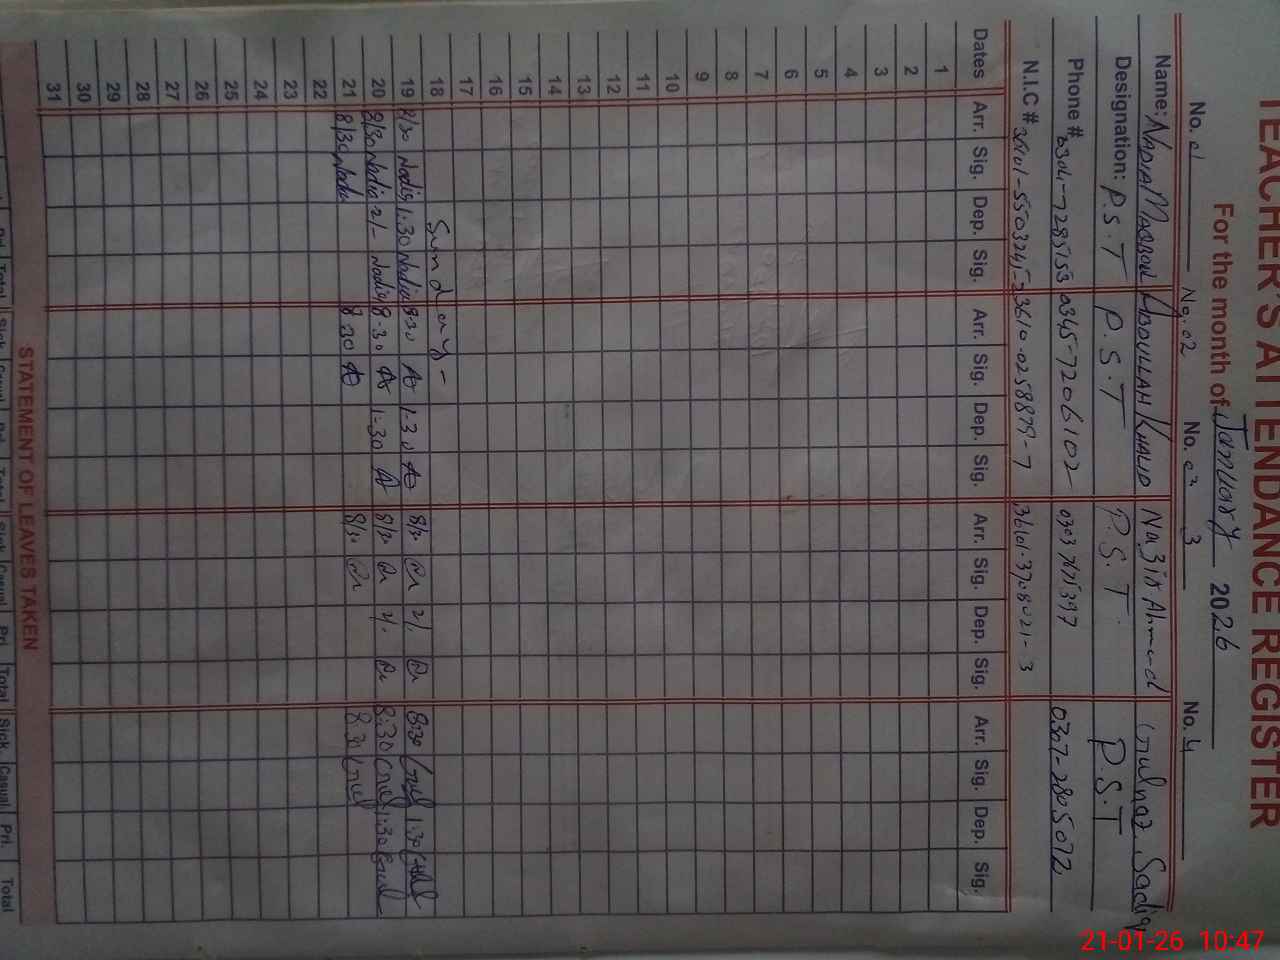 TEACHER'S ATTENDANCE REGISTER
For the month of January 2026
No. 01 No. 02 No. 03 3 No. 4
Name: NADIA MASOOD ABDULLAH KHALID Nazir Ahmad Gulnaz Sadiq
Designation: P.S.T P.S.T P.S.T. P.S.T
Phone # 0304-7285153 0345-7206102 0307-2805072
N.I.C # 36101-5503245-2 36101-3708021-3
Dates Arr. Sig. Dep. Sig. Arr. Sig. Dep. Sig. Arr. Sig. Dep. Sig. Arr. Sig. Dep. Sig.
1
2
3
4
5
6
7
8
9
10
11
12
13
14
15
16
17
18 Sunday-
19 8/30 Nadia 1:30 Nadia 8-30 1-30 8/30 2/. 8:30 Gul 1:30 Gul
20 8/30 Nadia 2/- Nadia 8-30 1-30 8/30 2/. 8:30 Gul 1:30 Gul
21 8/30 Nadia 8 30 8/30 8:30 Gul
22
23
24
25
26
27
28
29
30
31
STATEMENT OF LEAVES TAKEN
Total Sick Casual Pri. Total Sick Casual Pri. Total Sick. Casual Pri. Total
21-01-26 10:47